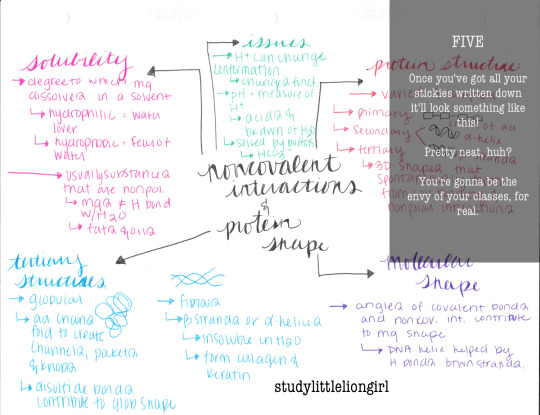 solubility
→ degree to which mq
dissolves in a solvent
↳ hydrophilic = water
lover
↳ hydrophobic = fears of
water
→ usually substances
that are nonpol.
↳ mqs ≠ H bond
w/H2O
↳ fats & oils
issues
→ H+ can change
conformation
↳ changes funct
→ pH = measure of
H+
↳ acids &
bkdwn of H2O
↳ solved by buffers
↳ HCO3
protein structure
→ various
↳ primary
↳ secondary
of aa
α-helix
strands
↳ tertiary
↳ 3D shapes that
nonpolar interactions
FIVE
Once you've got all your
stickies written down
it'll look something like
this!
Pretty neat, huh?
You're gonna be the
envy of your classes, for
real.
noncovalent
interactions
&
protein
shape
tertiary
structures
→ globular
→ aa chains
fold to create
channels, pockets
& knobs
↳ disulfide bonds
contribute to glob shape
→ fibrous
↳ β strands or α-helices
↳ insoluble in H2O
↳ form collagen &
keratin
molecular
shape
→ angles of covalent bonds
and noncov. int. contribute
to mq shape
↳ DNA helix helped by
H bonds btwn strands.
studylittleliongirl